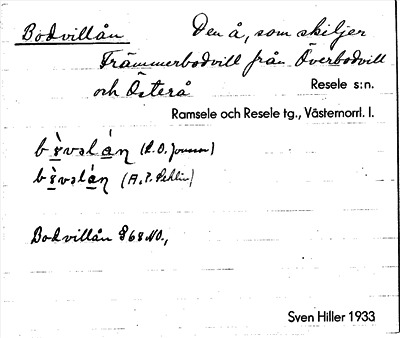 Bodvillån Den å, som skiljer
Främmerbodvill från Överbodvill
och Österå Resele s:n.
Ramsele och Resele tg., Västernorrl. l.
(A. P. Sehlin)
Bodvillån § 68 NO.,
Sven Hiller 1933